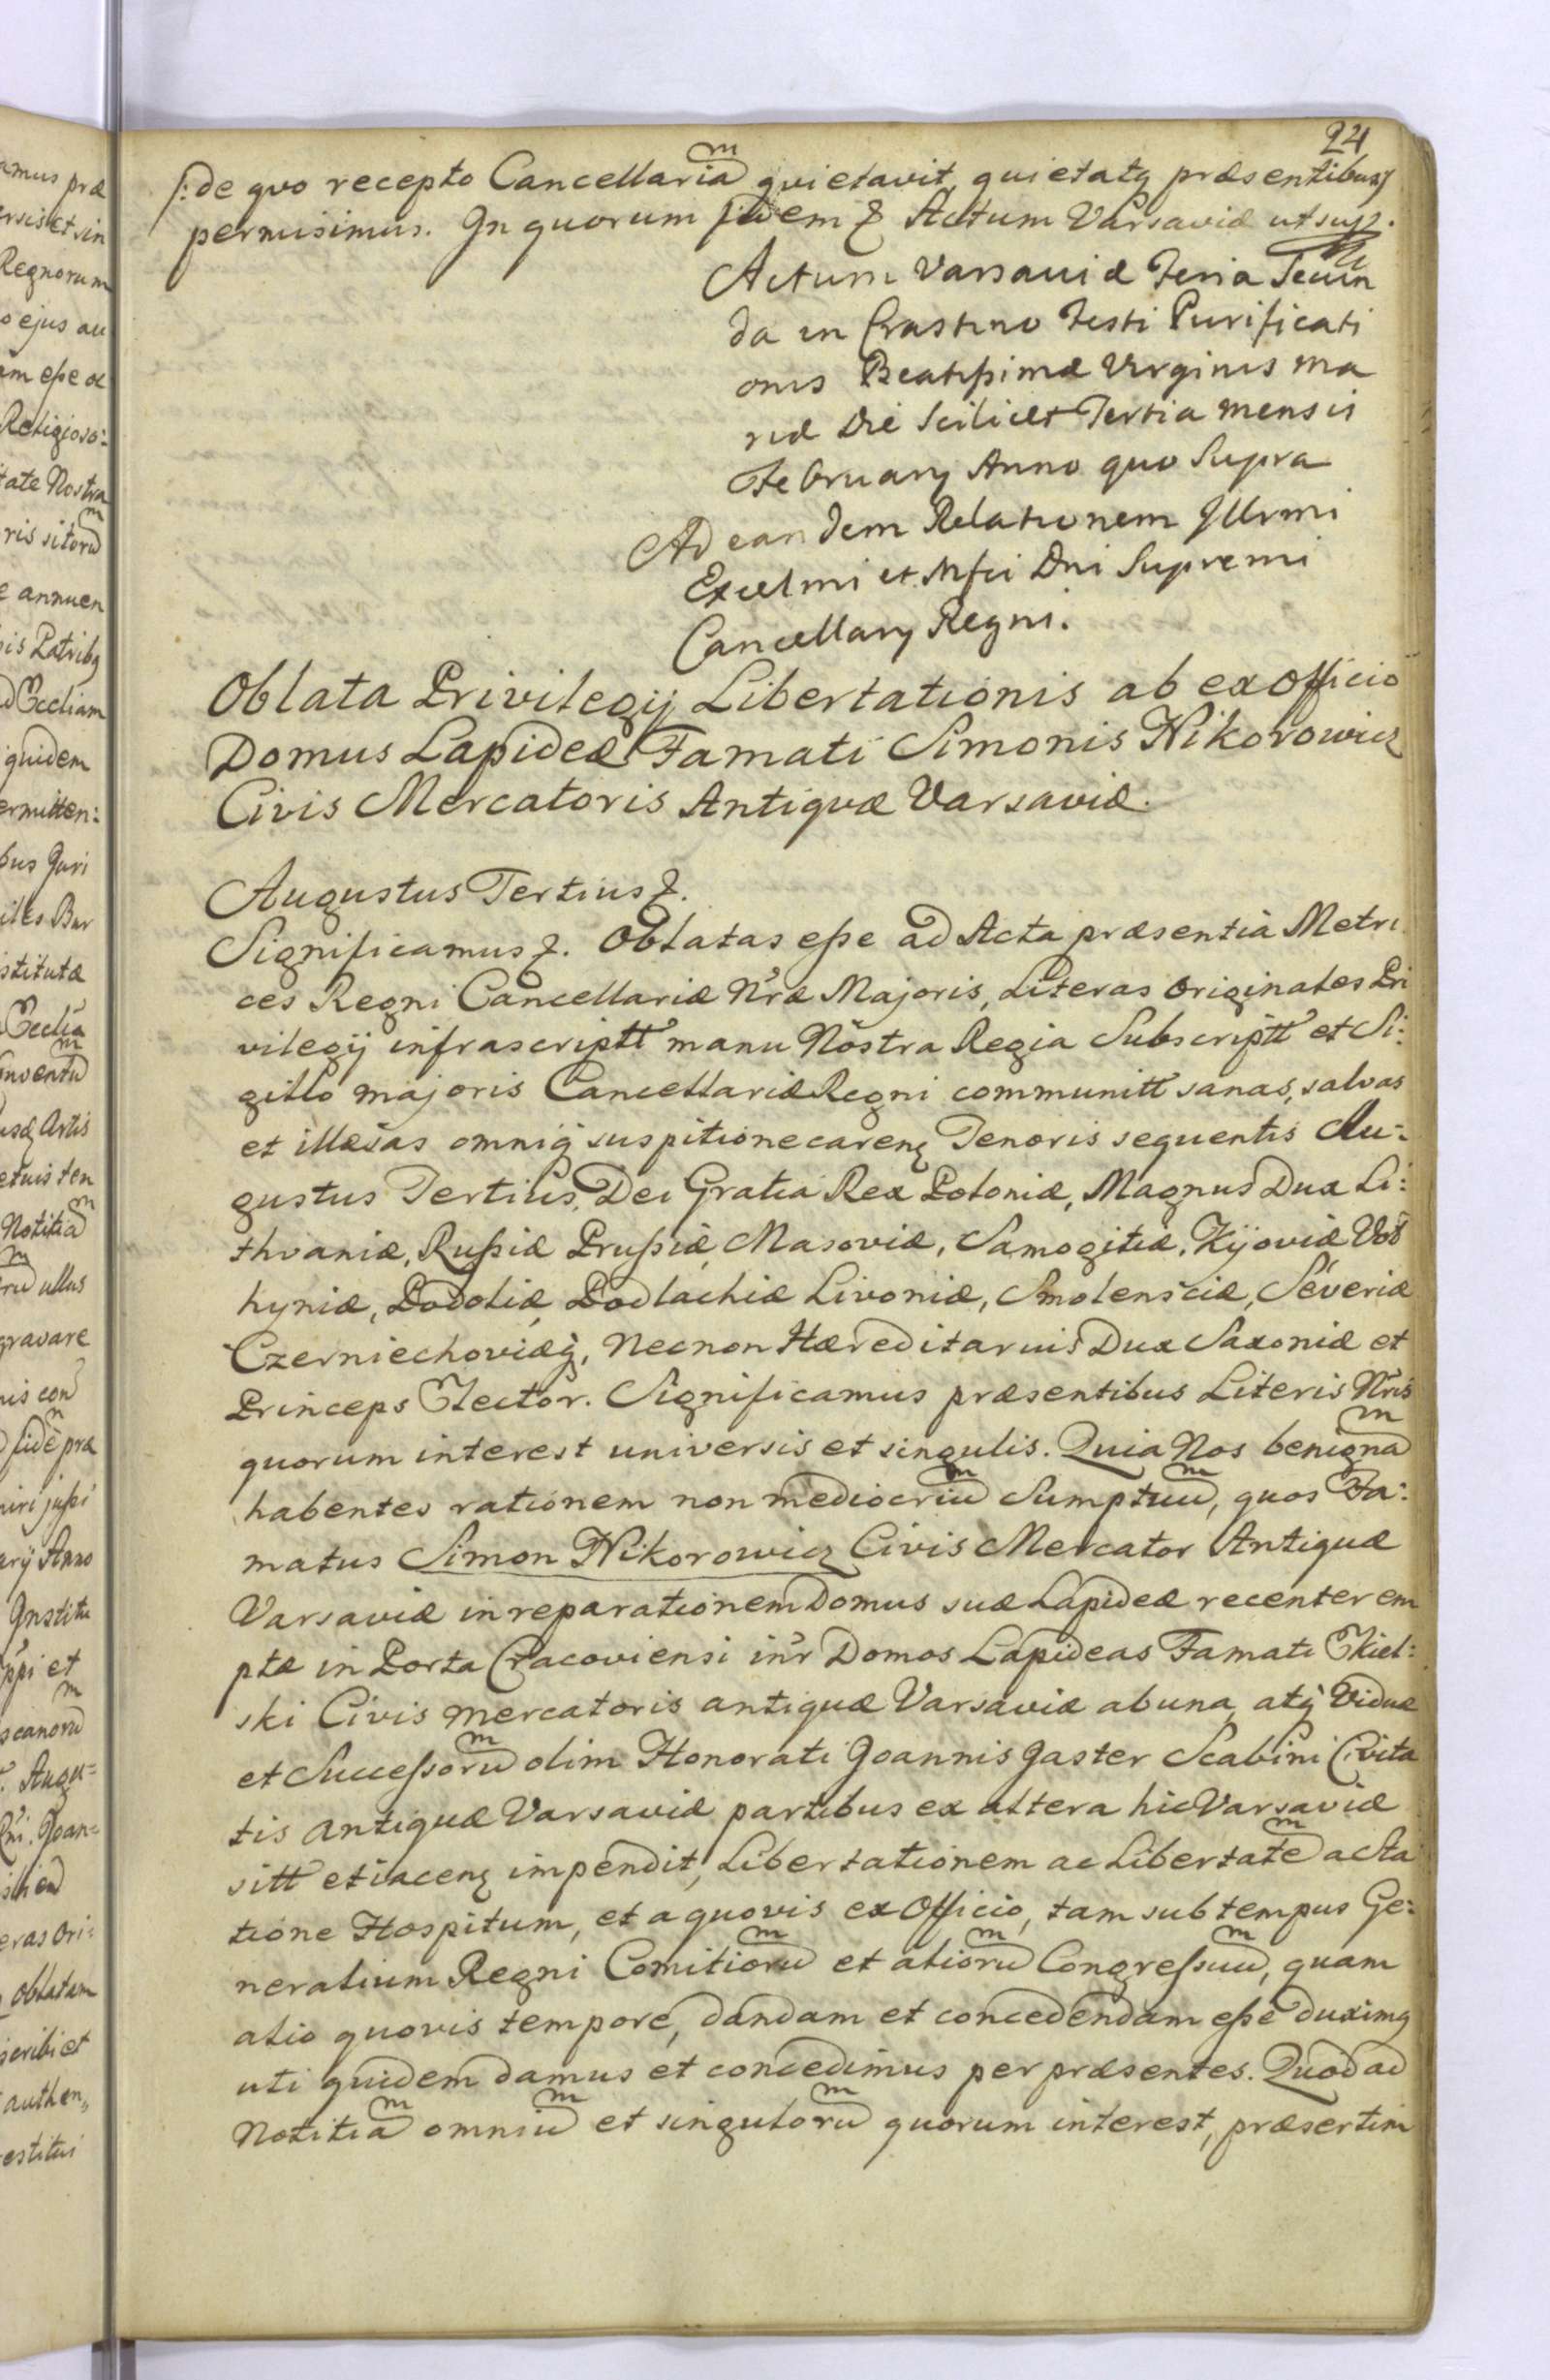 24
/: de quo recepto Cancellariam quietavit, quietatq præsentibus /
permisimus. In quorum fidem &. Actum Varsaviæ ut sup.
Actum Varsaviæ Feria Secun
da in Crastino Festi Purificati
onis Beatissimæ Virginis Ma
riæ Die Scilicet Tertia Mensis
February Anno quo Supra
Ad eandem Relationem Illrmi
Excelmi et Mfci Dni Supremi
Cancellary Regni.
Oblata Privilegij Libertationis ab ex Officio
Domus Lapideæ Famati Simonis Nikorowicz
Civis Mercatoris Antiquæ Varsaviæ.
Augustus Tertius &.
Significamus &. Oblatas esse ad Acta præsentia Metri
ces Regni Cancellariæ Nræ Majoris, Literas Originales Pri
vilegij infrascriptt manu Nostra Regia Subscriptt et Si:
gillo majoris Cancellariæ Regni communitt sanas, salvas
et illæsas omniq suspitione careñ Tenoris sequentis Au:
gustus Tertius, Dei Gratia Rex Poloniæ, Magnus Dux Li:
thvaniæ, Russiæ Prussiæ, Masoviæ, Samogitiæ, Kijoviæ Vol
hyniæ, Podoliæ, Podlachiæ Livoniæ, Smolensciæ, Severiæ
Czerniechoviæq, Necnon Hæreditarius Dux Saxoniæ et
Princeps Elector. Significamus præsentibus Literis Nris
quorum interest universis et singulis. Quia Nos benignam
habentes rationem non mediocrium Sumptuum, quos Fa:
matus Simon Nikorowicz Civis Mercator Antiquæ
Varsaviæ in reparationem Domus suæ Lapideæ recenter em
ptæ in Porta Cracoviensi inr Domos Lapideas Famati Ekiel:
ski Civis Mercatoris antiquæ Varsaviæ ab una, atq Viduæ
et Successorum olim Honorati Joannis Gaster Scabini Civita
tis Antiquæ Varsaviæ partibus ex altera hic Varsaviæ
sitt et iaceñ impendit, Libertationem ac Libertatem a sta
tione Hospitum, et a quovis ex Officio, tam sub tempus Ge:
neralium Regni Comitiorum et aliorum Congressuum, quam
alio quovis tempore, dandam et concedendam esse duximq
uti quidem damus et concedimus per præsentes. Quod ad
Notitiam omnium et singulorum quorum interest, præsertim